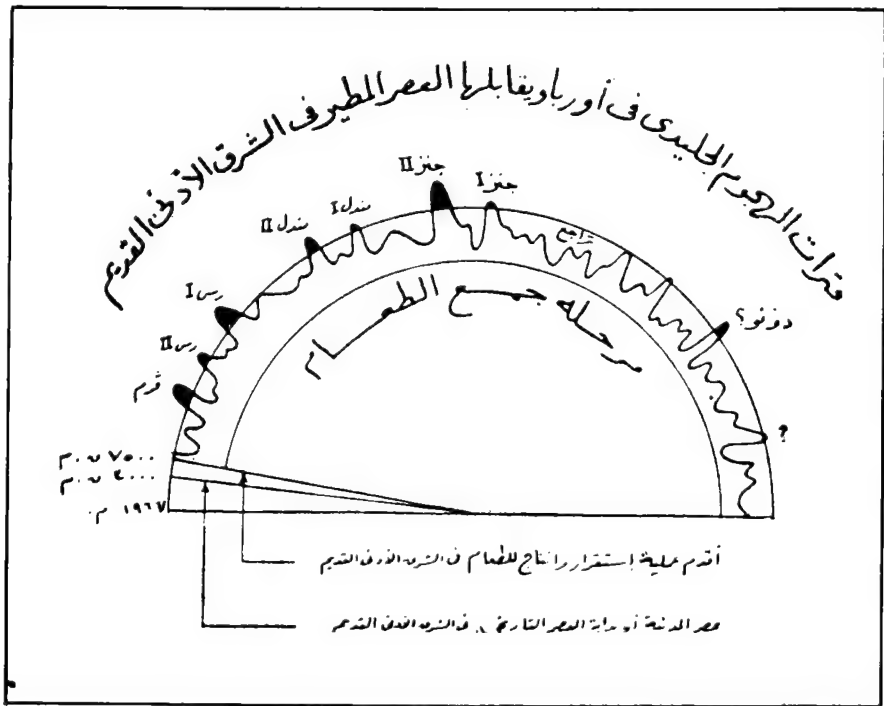 فترات الهجوم الجليدى فى أوربا ويقابلها العصر المطير فى الشرق الأدنى القديم
جنز II
جنز I
مندل I
مندل II
تراجع
رس I
رس II
ڤرم
دونو؟
؟
مرحله جمع الطعام
٧٥٠٠ ق.م
٣٠٠٠ ق.م
١٩٦٧ م.
أقدم عملية إستقرار وانتاج للطعام فى الشرق الأدنى القديم
عصر المدنية أو بداية العصر التاريخى فى الشرق الادنى القديم